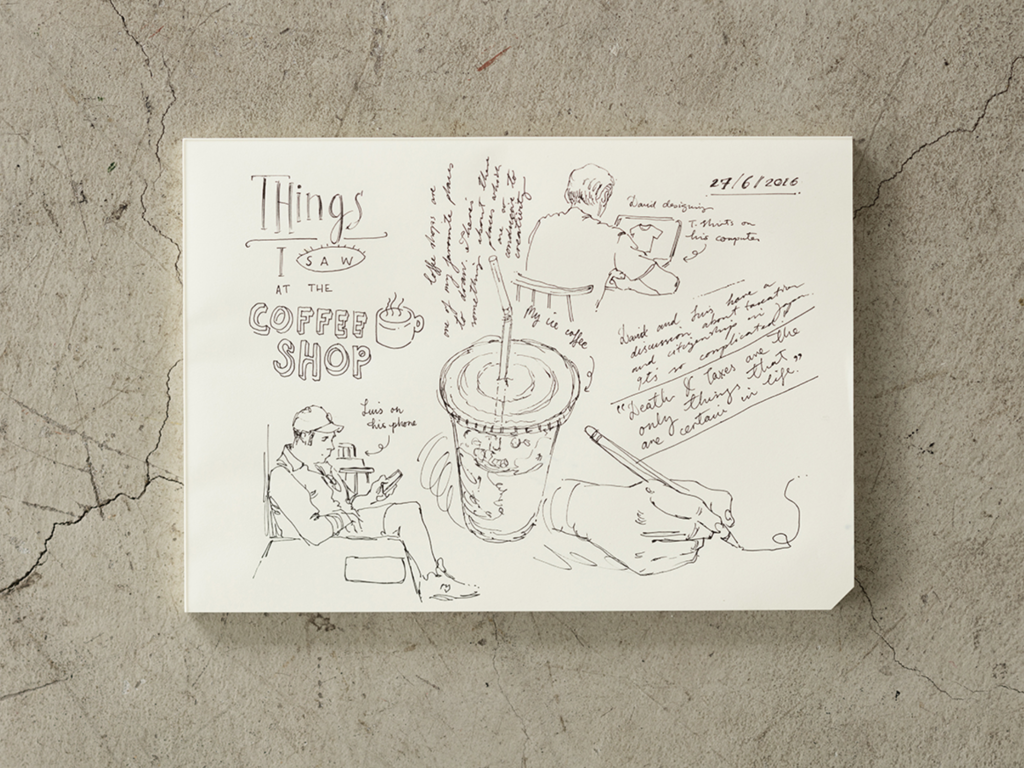 Things
I SAW
AT THE
COFFEE
SHOP
Coffee shops are
one of my favourite places
to draw. There's
something about them
places where
we are
anonymous to
creativity
27/6/2016
David designing
T-shirts on
his computer
My ice coffee
David and Luis have a
discussion about taxation
and citizenship in
It's so complicated!
"Death & taxes are the
only things that
are certain in life."
Luis on
his phone